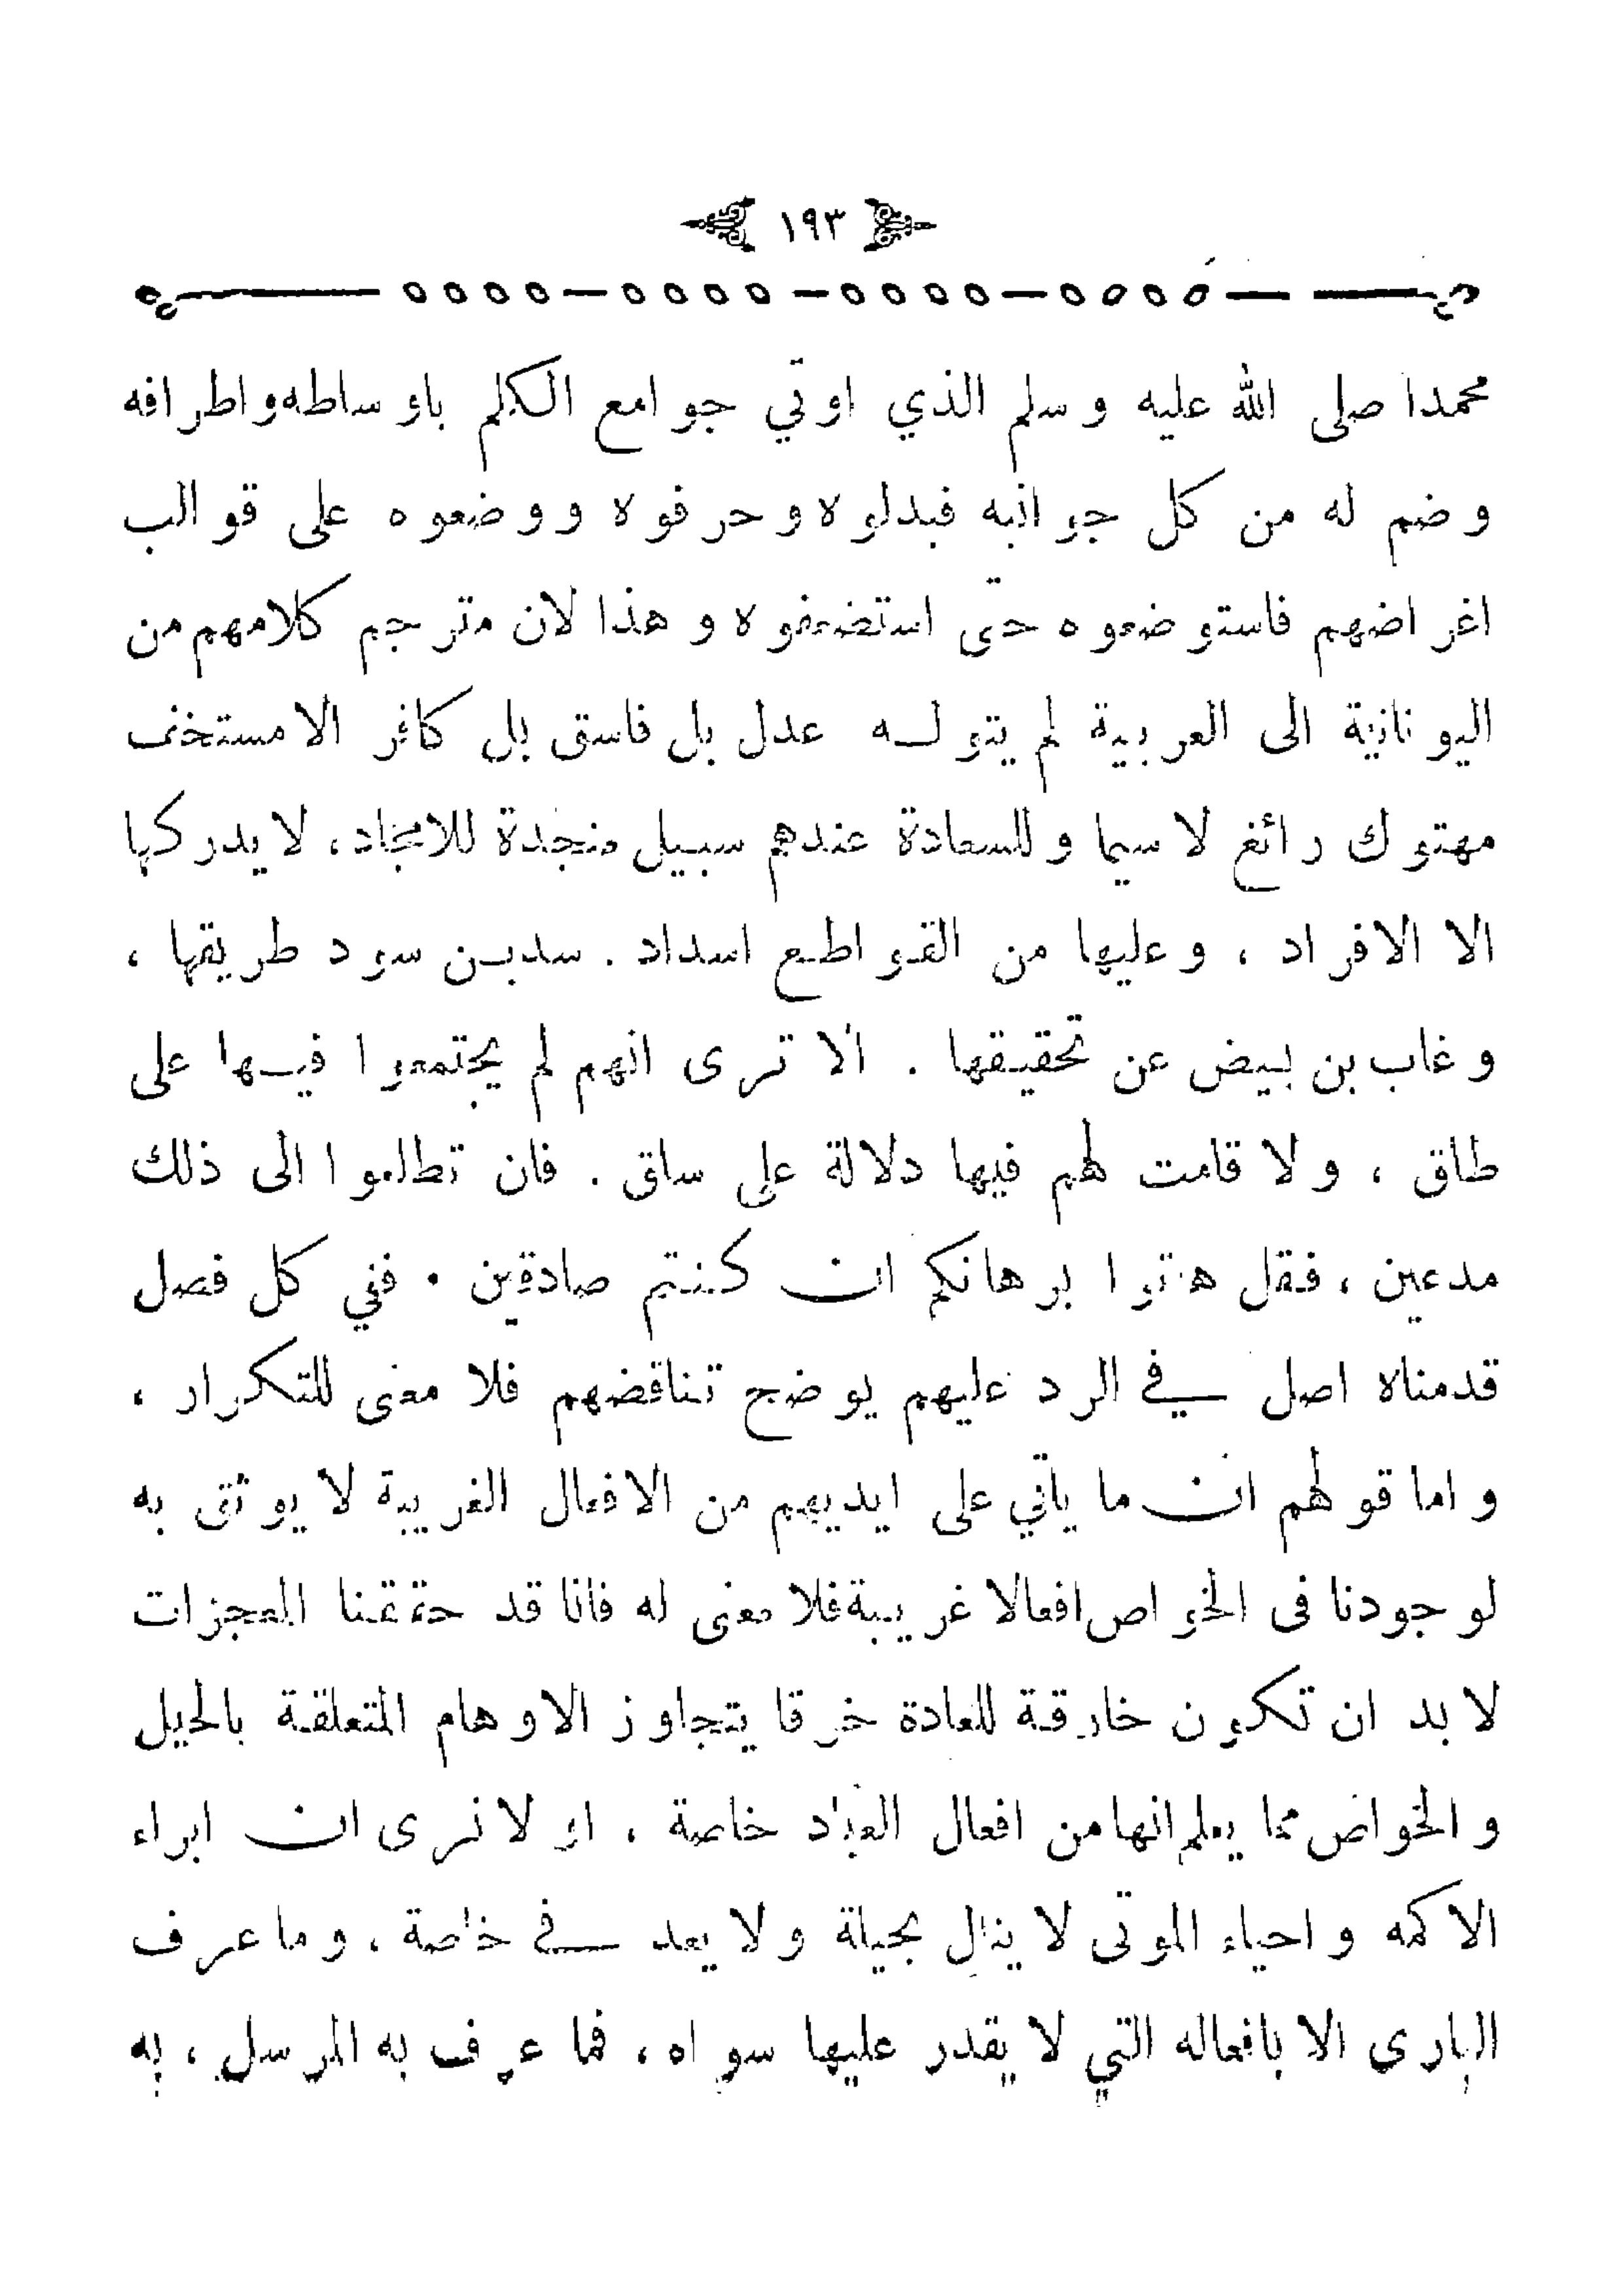 ١٩٣
محمدا صلى الله عليه وسلم الذي اوتي جوامع الكلم باوساطه واطرافه
وضم له من كل جوانبه فبدلوه وحرفوه ووضعوه على قوالب
اغراضهم فاستوضعوه حتى استضعفوه وهذا لان مترجم كلامهم من
اليونانية الى العربية لم يتوله عدل بل فاسق بل كافر الا مستخف
مهتوك رائغ لا سيما وللسعادة عندهم سبيل منجدة للامجاد، لا يدركها
الا الافراد ، وعليها من القواطع اسداد . سدبن سود طريقها ،
وغاب بن بيض عن تحقيقها . الا ترى انهم لم يجتمعوا فيها على
طاق ، ولا قامت لهم فيها دلالة على ساق . فان تطلعوا الى ذلك
مدعين ، فقل هاتوا برهانكم ان كنتم صادقين . ففي كل فصل
قدمناه اصل في الرد عليهم يوضح تناقضهم فلا معنى للتكرار ،
واما قولهم ان ما يأتي على ايديهم من الافعال الغريبة لا يوثق به
لوجودنا فى الخواص افعالا غريبة فلا معنى له فانا قد حققنا المعجزات
لا بد ان تكون خارقة للعادة خرقا يتجاوز الاوهام المتعلقة بالحيل
والخواص مما يعلم انها من افعال العباد خاصة ، او لا نرى ان ابراء
الاكمه واحياء الموتى لا ينال بحيلة ولا يعد في خاصة ، وما عرف
البارى الا بافعاله التي لا يقدر عليها سواه ، فما عرف به المرسل ، به